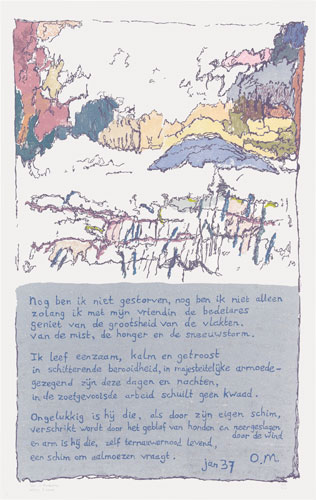 Nog ben ik niet gestorven, nog ben ik niet alleen
zolang ik met mijn vriendin de bedelares
geniet van de grootsheid van de vlakten,
van de mist, de honger en de sneeuwstorm.
Ik leef eenzaam, kalm en getroost
in schitterende berooidheid, in majesteitelijke armoede-
gezegend zijn deze dagen en nachten,
in de zoetgevooisde arbeid schuilt geen kwaad.
Ongelukkig is hij die, als door zijn eigen schim,
verschrikt wordt door het geblaf van honden en neergeslagen
door de wind
en arm is hij die, zelf ternauwernood levend,
een schim om aalmoezen vraagt.
O.M.
jan 37